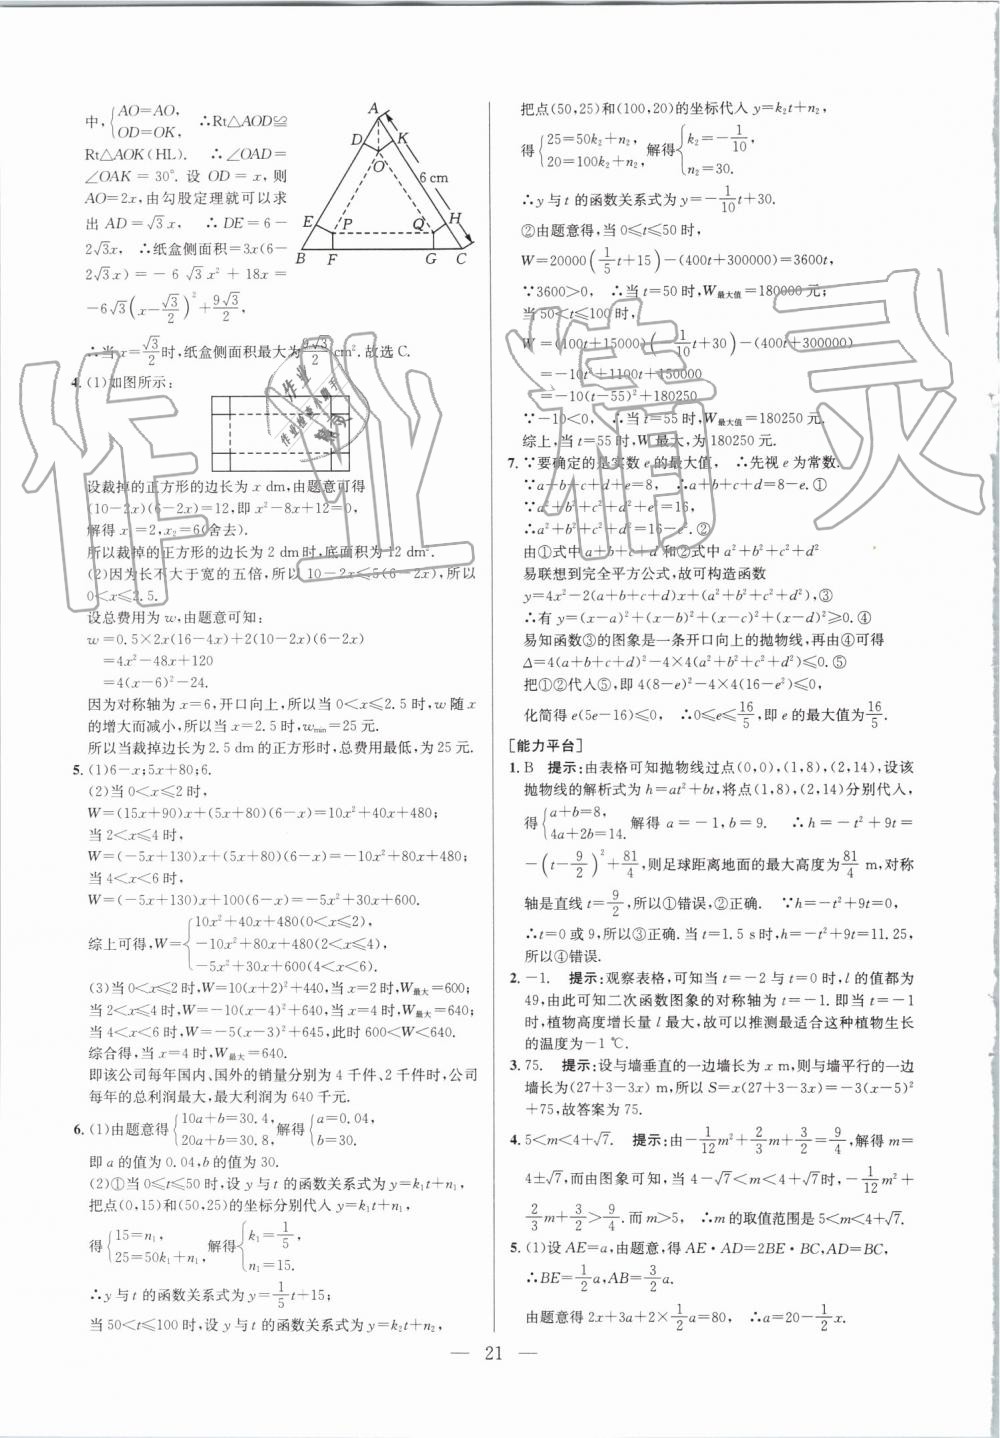 中,{AO=AO, OD=OK, ∴Rt△AOD≌
Rt△AOK(HL). ∴∠OAD=
∠OAK=30°. 设 OD=x, 则
AO=2x, 由勾股定理就可以求
出 AD=√3x, ∴DE=6-
2√3x, ∴纸盒侧面积=3x(6-
2√3x)=-6√3x²+18x=
-6√3(x-√3/2)²+9√3/2,
∴当 x=√3/2时,纸盒侧面积最大为9√3/2 cm².故选C.
A
D
K
O
6 cm
E
P
Q
H
B
F
G
C
4. (1)如图所示:
设裁掉的正方形的边长为 x dm,由题意可得
(10-2x)(6-2x)=12,即 x²-8x+12=0,
解得 x₁=2,x₂=6(舍去).
所以裁掉的正方形的边长为 2 dm时,底面积为12 dm².
(2)因为长不大于宽的五倍,所以 10-2x≤5(6-2x),所以
0<x≤2.5.
设总费用为 w,由题意可知:
w=0.5×2x(16-4x)+2(10-2x)(6-2x)
=4x²-48x+120
=4(x-6)²-24.
因为对称轴为 x=6,开口向上,所以当 0<x≤2.5 时,w 随 x
的增大而减小,所以当 x=2.5 时,wmin=25 元.
所以当裁掉边长为 2.5 dm的正方形时,总费用最低,为 25 元.
5. (1)6-x;5x+80;6.
(2)当 0<x≤2 时,
W=(15x+90)x+(5x+80)(6-x)=10x²+40x+480;
当 2<x≤4 时,
W=(-5x+130)x+(5x+80)(6-x)=-10x²+80x+480;
当 4<x<6 时,
W=(-5x+130)x+100(6-x)=-5x²+30x+600.
综上可得,W={10x²+40x+480(0<x≤2), -10x²+80x+480(2<x≤4), -5x²+30x+600(4<x<6).
(3)当 0<x≤2 时,W=10(x+2)²+440,当 x=2 时,W最大=600;
当 2<x≤4 时,W=-10(x-4)²+640,当 x=4 时,W最大=640;
当 4<x<6 时,W=-5(x-3)²+645,此时 600<W<640.
综合得,当 x=4 时,W最大=640.
即该公司每年国内、国外的销量分别为 4 千件、2 千件时,公司
每年的总利润最大,最大利润为 640 千元.
6. (1)由题意得{10a+b=30.4, 20a+b=30.8, 解得{a=0.04, b=30.
即 a 的值为 0.04,b 的值为 30.
(2)①当 0≤t≤50 时,设 y 与 t 的函数关系式为 y=k₁t+n₁,
把点(0,15)和(50,25)的坐标分别代入 y=k₁t+n₁,
得{15=n₁, 25=50k₁+n₁, 解得{k₁=1/5, n₁=15.
∴y 与 t 的函数关系式为 y=1/5t+15;
当 50<t≤100 时,设 y 与 t 的函数关系式为 y=k₂t+n₂,
把点(50,25)和(100,20)的坐标代入 y=k₂t+n₂,
得{25=50k₂+n₂, 20=100k₂+n₂, 解得{k₂=-1/10, n₂=30.
∴y 与 t 的函数关系式为 y=-1/10t+30.
②由题意得,当 0≤t≤50 时,
W=20000(1/5t+15)-(400t+300000)=3600t,
∵3600>0, ∴当 t=50 时,W最大值=180000 元;
当 50<t≤100 时,
W=(100t+15000)(-1/10t+30)-(400t+300000)
=-10t²+1100t+150000
=-10(t-55)²+180250
∵-10<0, ∴当 t=55 时,W最大值=180250 元.
综上,当 t=55 时,W 最大,为 180250 元.
7. ∵要确定的是实数 e 的最大值, ∴先视 e 为常数.
∵a+b+c+d+e=8, ∴a+b+c+d=8-e.①
∵a²+b²+c²+d²+e²=16,
∴a²+b²+c²+d²=16-e².②
由①式中 a+b+c+d 和②式中 a²+b²+c²+d²
易联想到完全平方公式,故可构造函数
y=4x²-2(a+b+c+d)x+(a²+b²+c²+d²),③
∴有 y=(x-a)²+(x-b)²+(x-c)²+(x-d)²≥0.④
易知函数③的图象是一条开口向上的抛物线,再由④可得
Δ=4(a+b+c+d)²-4×4(a²+b²+c²+d²)≤0.⑤
把①②代入⑤,即 4(8-e)²-4×4(16-e²)≤0,
化简得 e(5e-16)≤0, ∴0≤e≤16/5,即 e 的最大值为16/5.
[能力平台]
1. B 提示:由表格可知抛物线过点(0,0),(1,8),(2,14),设该
抛物线的解析式为 h=at²+bt,将点(1,8),(2,14)分别代入,
得{a+b=8, 4a+2b=14. 解得 a=-1,b=9. ∴h=-t²+9t=
-(t-9/2)²+81/4,则足球距离地面的最大高度为81/4 m,对称
轴是直线 t=9/2,所以①错误,②正确. ∵h=-t²+9t=0,
∴t=0 或 9,所以③正确.当 t=1.5 s时,h=-t²+9t=11.25,
所以④错误.
2. -1. 提示:观察表格,可知当 t=-2 与 t=0 时,l 的值都为
49,由此可知二次函数图象的对称轴为 t=-1. 即当 t=-1
时,植物高度增长量 l 最大,故可以推测最适合这种植物生长
的温度为-1 ℃.
3. 75. 提示:设与墙垂直的一边墙长为 x m,则与墙平行的一边
墙长为(27+3-3x) m,所以 S=x(27+3-3x)=-3(x-5)²
+75,故答案为 75.
4. 5<m<4+√7. 提示:由-1/12m²+2/3m+3/2=9/4,解得 m=
4±√7,而由图象可知,当 4-√7<m<4+√7时,-1/12m²+
2/3m+3/2>9/4.而 m>5, ∴m 的取值范围是 5<m<4+√7.
5. (1)设 AE=a,由题意,得 AE·AD=2BE·BC,AD=BC,
∴BE=1/2a,AB=3/2a.
由题意得 2x+3a+2×1/2a=80, ∴a=20-1/2x.
— 21 —
作业精灵
作业
作业检查小助手
精灵